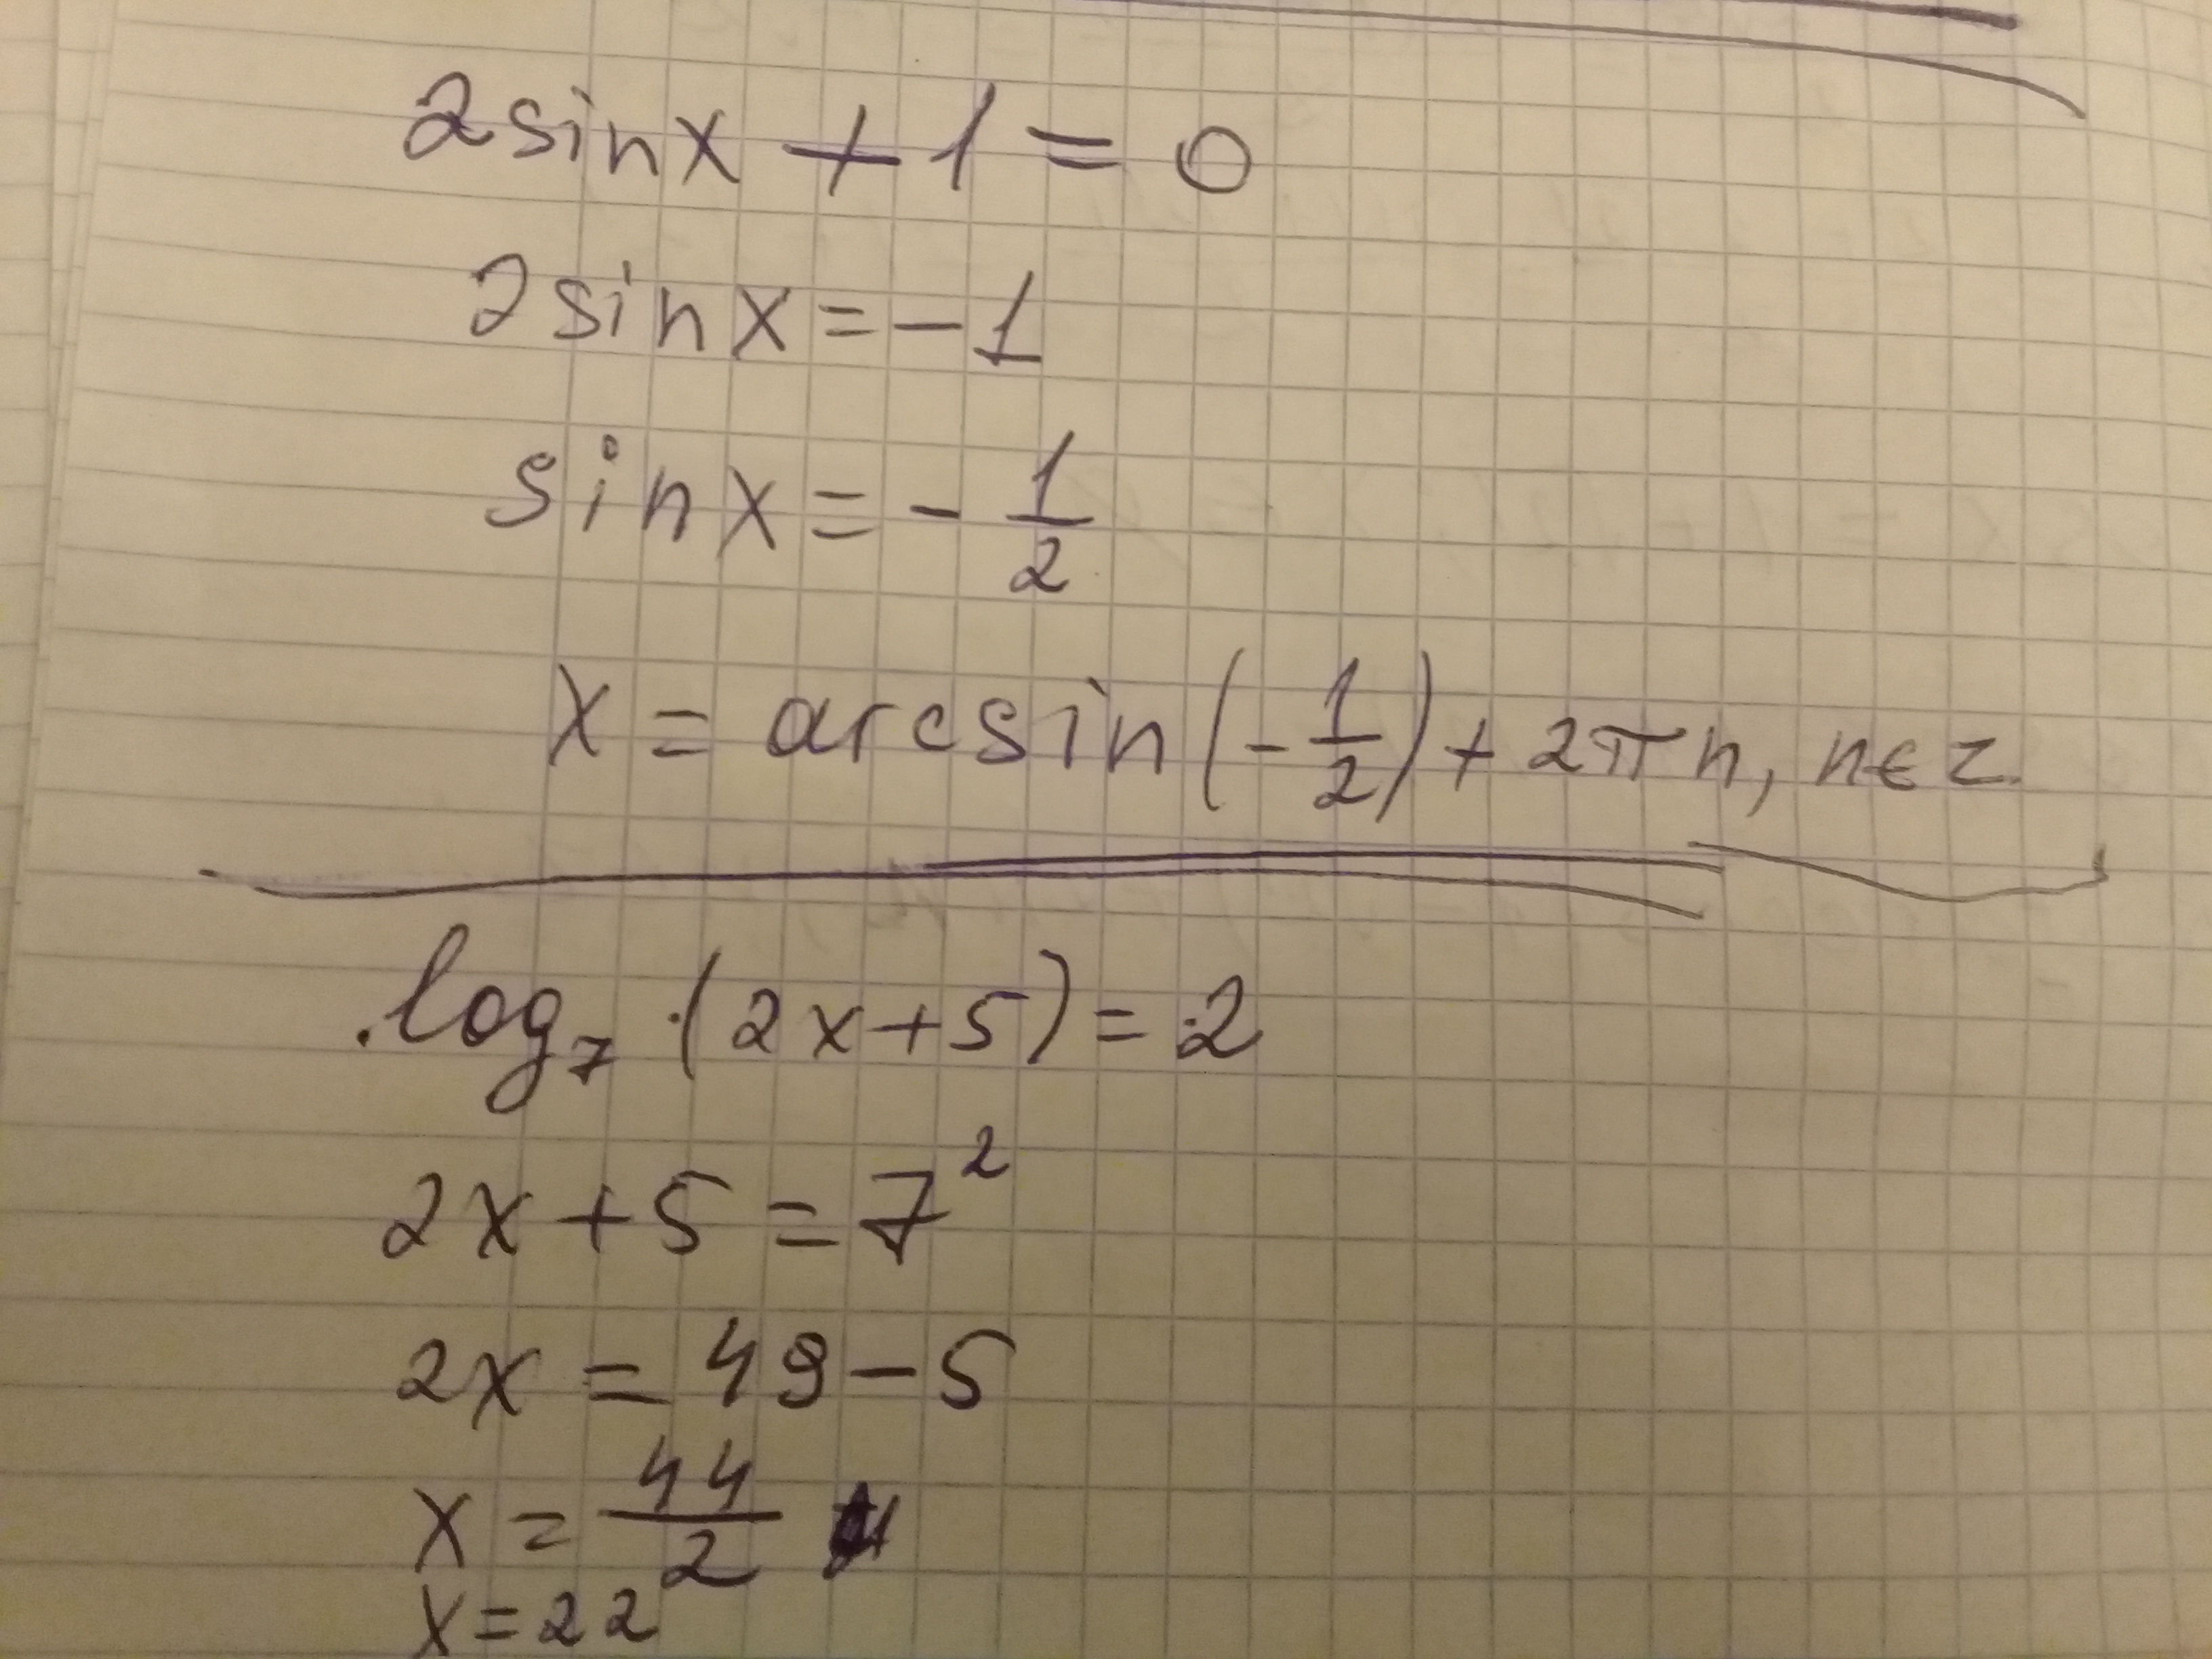 2sinx + 1 = 0
2sinx = -1
sinx = - 1/2
x = arcsin(-1/2) + 2πn, n∈z.
log₇ (2x+5) = 2
2x + 5 = 7²
2x = 49 - 5
x = 44/2
x = 22